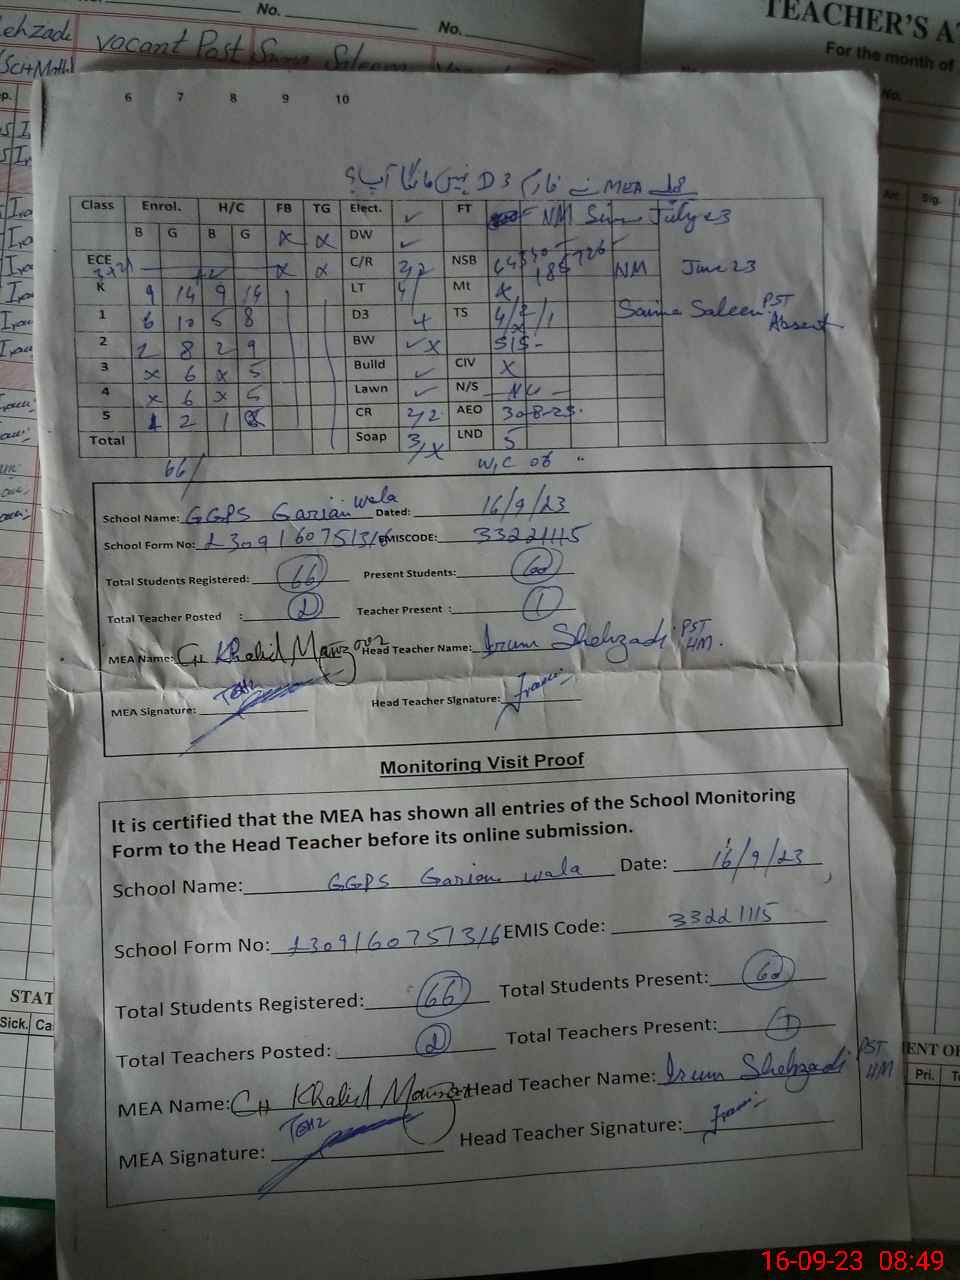 No. No.
ehzadi vacant Post Saima Saleem
TEACHER'S A
For the month of
No.
6 7 8 9 10
MEA نے فارم D3 نہیں مانگا آپ؟
Class Enrol. H/C FB TG Elect. ✓ FT NM Since July 23
B G B G x x DW ✓
ECE x x C/R 2/2 NSB NM June 23
K 9 14 9 14 LT 4/ Mt x
1 6 10 5 8 D3 x TS 4/2/1 Saima Saleem PST Absent
2 2 8 2 9 BW ✓ x SIS-
3 x 6 x 5 Build ✓ CIV x
4 x 6 x 5 Lawn ✓ N/S
5 1 2 1 CR 2/2 AEO 30-8-23
Total Soap 3/x LND 5
66/ W.C 08 "
School Name: GGPS Garian wala Dated: 16/9/23
School Form No: 2309160751316 EMISCODE: 33221115
Total Students Registered: 66 Present Students: 60
Total Teacher Posted : 2 Teacher Present : 1
MEA Name: CH Khalid Manzoor Head Teacher Name: Irum Shehzadi PST HM.
MEA Signature: Head Teacher Signature:
Monitoring Visit Proof
It is certified that the MEA has shown all entries of the School Monitoring
Form to the Head Teacher before its online submission.
School Name: GGPS Garian wala Date: 16/9/23
School Form No: 2309160751316 EMIS Code: 33221115
Total Students Registered: 66 Total Students Present: 60
Total Teachers Posted: 2 Total Teachers Present: 1
MEA Name: CH Khalid Manzoor Head Teacher Name: Irum Shehzadi PST HM
MEA Signature: Head Teacher Signature:
STAT
Sick. Ca
ENT OF
Pri.
Sig.
16-09-23 08:49